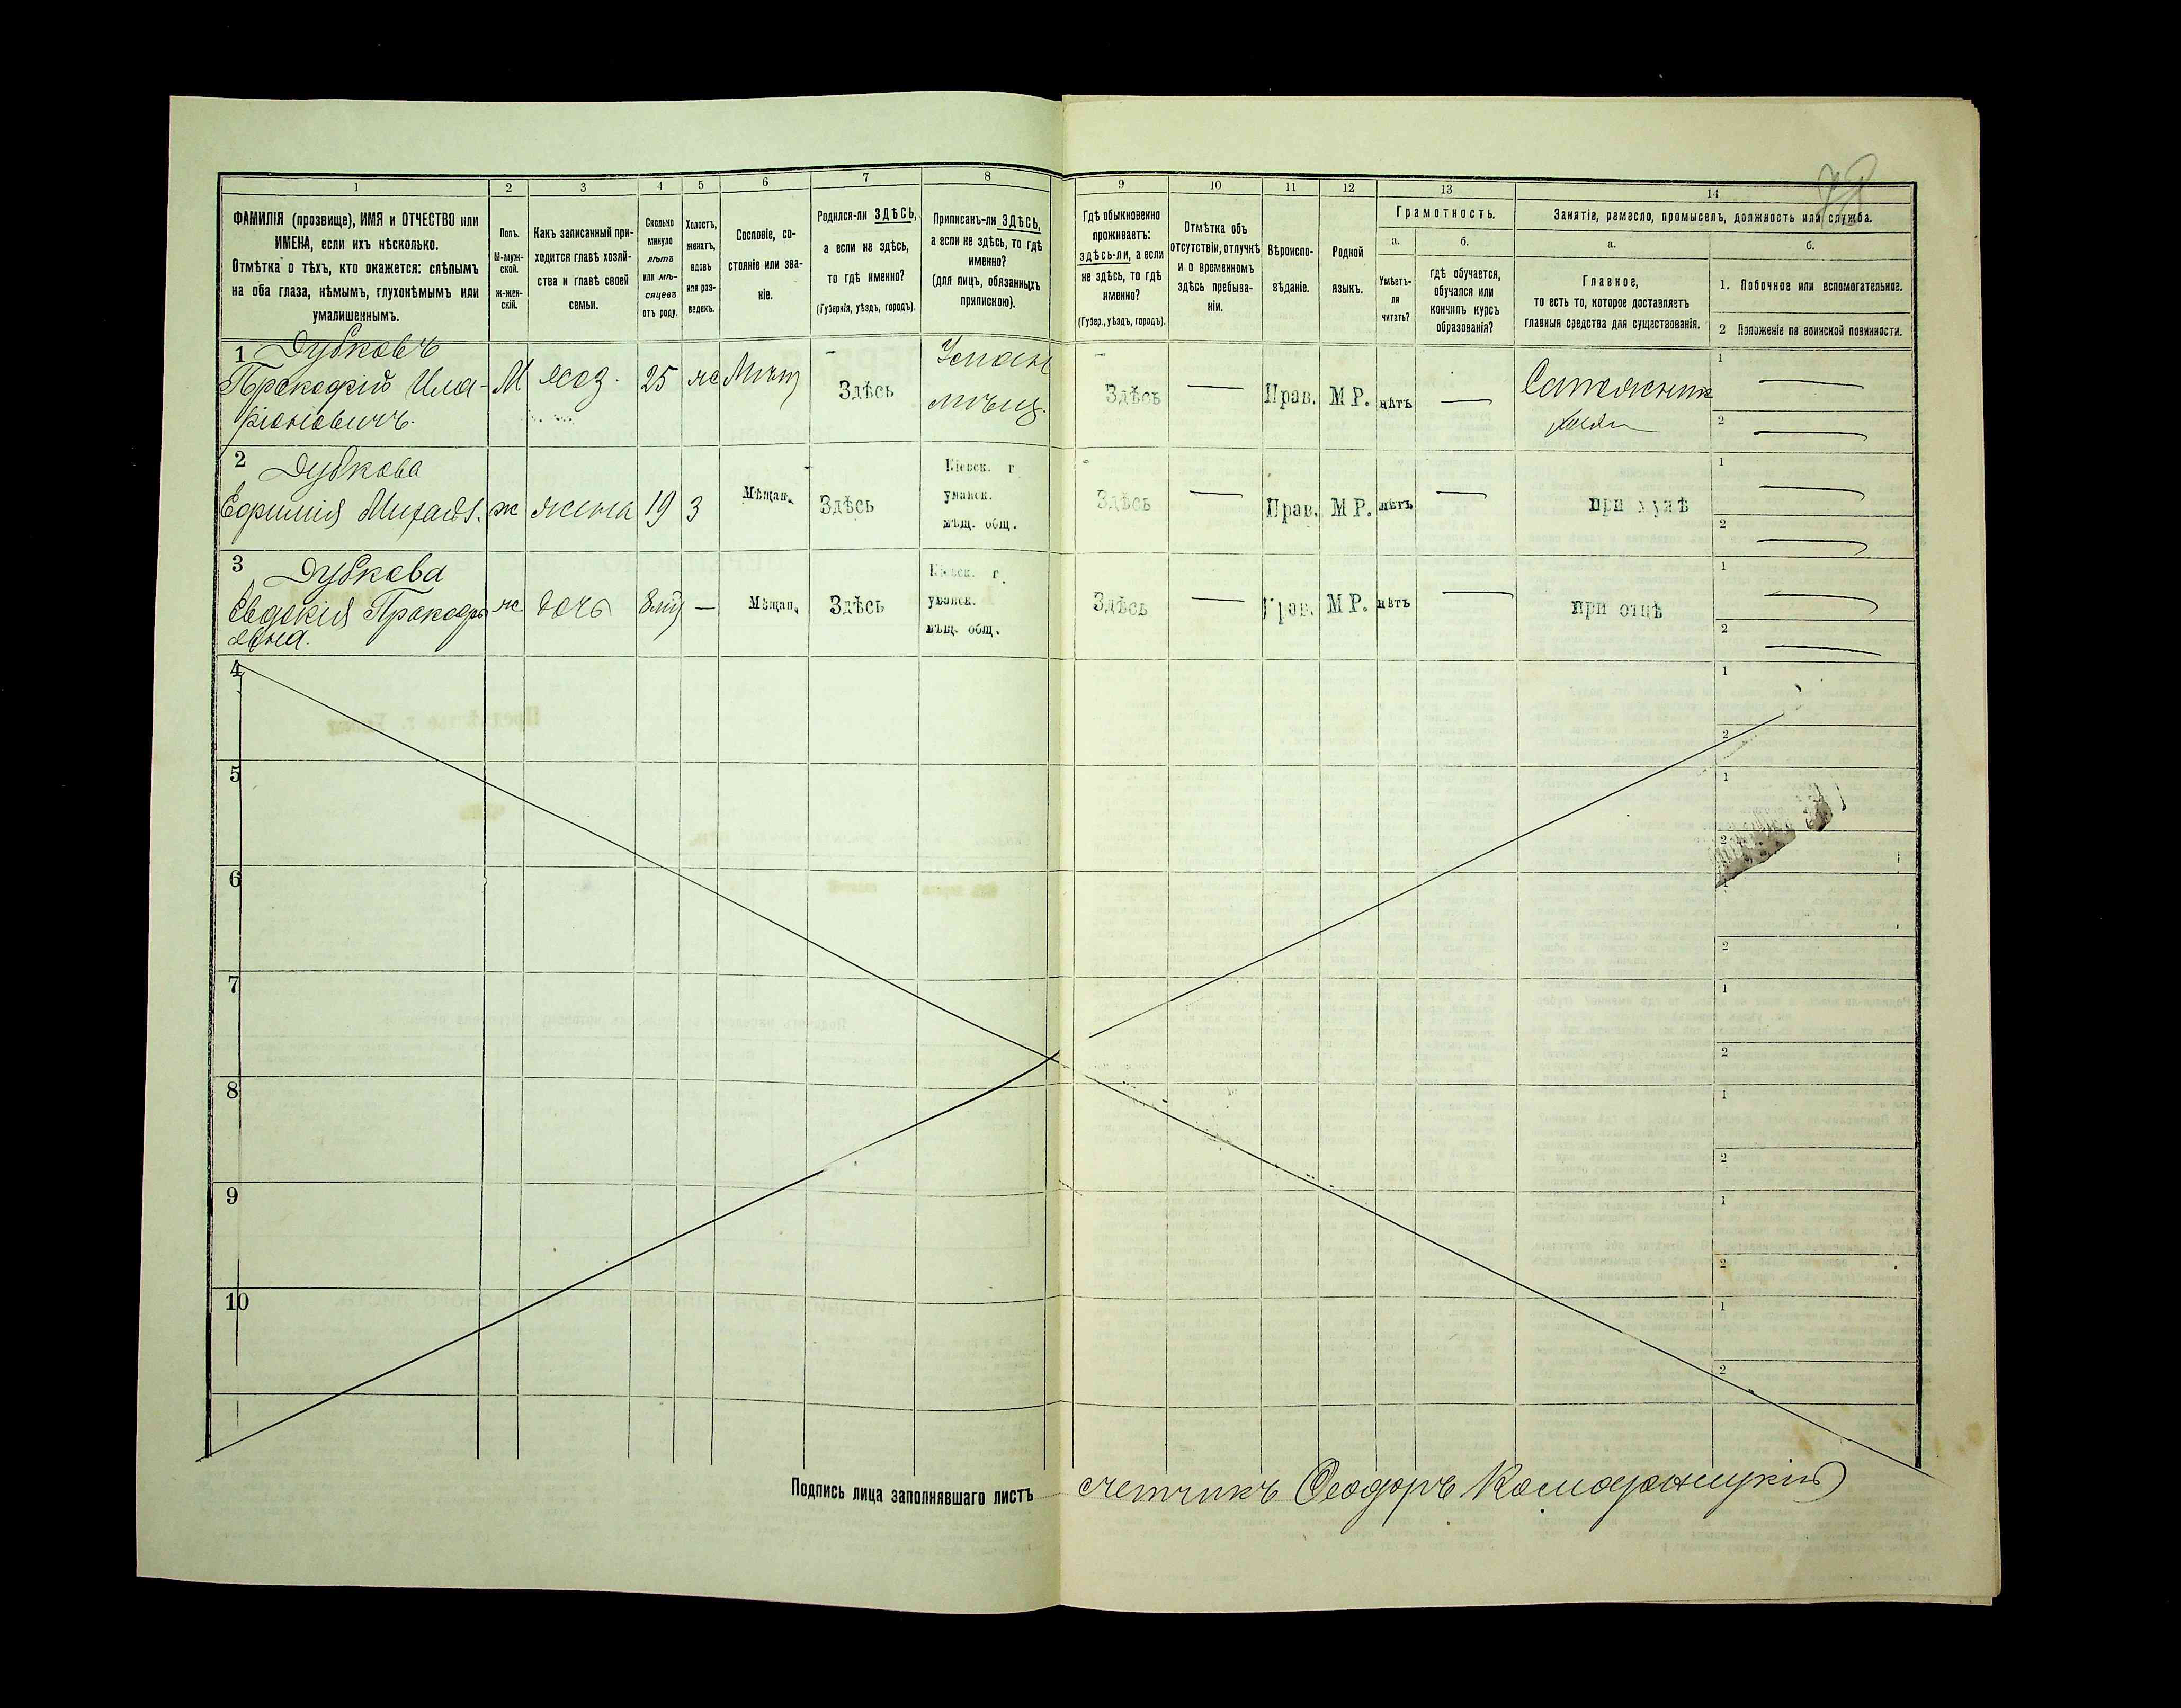 1 2 3 4 5 6 7 8
ФАМИЛІЯ (прозвище), ИМЯ и ОТЧЕСТВО или
ИМЕНА, если ихъ нѣсколько.
Отмѣтка о тѣхъ, кто окажется: слѣпымъ
на оба глаза, нѣмымъ, глухонѣмымъ или
умалишеннымъ.
Полъ.
М-муж-
ской.
ж-жен-
скій.
Какъ записанный при-
ходится главѣ хозяй-
ства и главѣ своей
семьи.
Сколько
минуло
лѣтъ
или мѣ-
сяцевъ
отъ роду.
Холостъ,
женатъ,
вдовъ
или раз-
веденъ.
Сословіе, со-
стояніе или зва-
ніе.
Родился-ли ЗДѢСЬ,
а если не здѣсь,
то гдѣ именно?
(Губернія, уѣздъ, городъ).
Приписанъ-ли ЗДѢСЬ,
а если не здѣсь, то гдѣ
именно?
(для лицъ, обязанныхъ
припискою).
9 10 11 12 13 14
Гдѣ обыкновенно
проживаетъ:
здѣсь-ли, а если
не здѣсь, то гдѣ
именно?
(Губер., уѣздъ, городъ).
Отмѣтка объ
отсутствіи, отлучкѣ
и о временномъ
здѣсь пребыва-
ніи.
Вѣроиспо-
вѣданіе.
Родной
языкъ.
Грамотность.
а. б.
Умѣетъ-
ли
читать?
гдѣ обучается,
обучался или
кончилъ курсъ
образованія?
Занятіе, ремесло, промыселъ, должность или служба.
а. б.
Главное,
то есть то, которое доставляетъ
главныя средства для существованія.
1. Побочное или вспомогательное.
2 Положеніе по воинской повинности.
1 Дубковъ
Прокофій Ила-
ріоновичъ. М хоз. 25 ж Мѣщ Здѣсь Уман
мѣщ. Здѣсь — Прав. М Р. нѣтъ — Сапожник
1 —
2 —
2 Дубкова
Евфимія Михайл. ж жена 19 З Мѣщан. Здѣсь Кіевск. г
уманск.
мѣщ. общ. Здѣсь — Прав. М Р. нѣтъ — при мужѣ
1 —
2 —
3 Дубкова
Евдокія Прокофь
евна. ж дочь 8 мѣц — Мѣщан. Здѣсь Кіевск. г.
уманск.
мѣщ. общ. Здѣсь — Прав. М Р. нѣтъ — при отцѣ
1 —
2 —
4 1
2
5 1
2
6 1
2
7 1
2
8 1
2
9 1
2
10 1
2
Подпись лица заполнявшаго листъ счетчикъ Ѳеодоръ Комарницкій